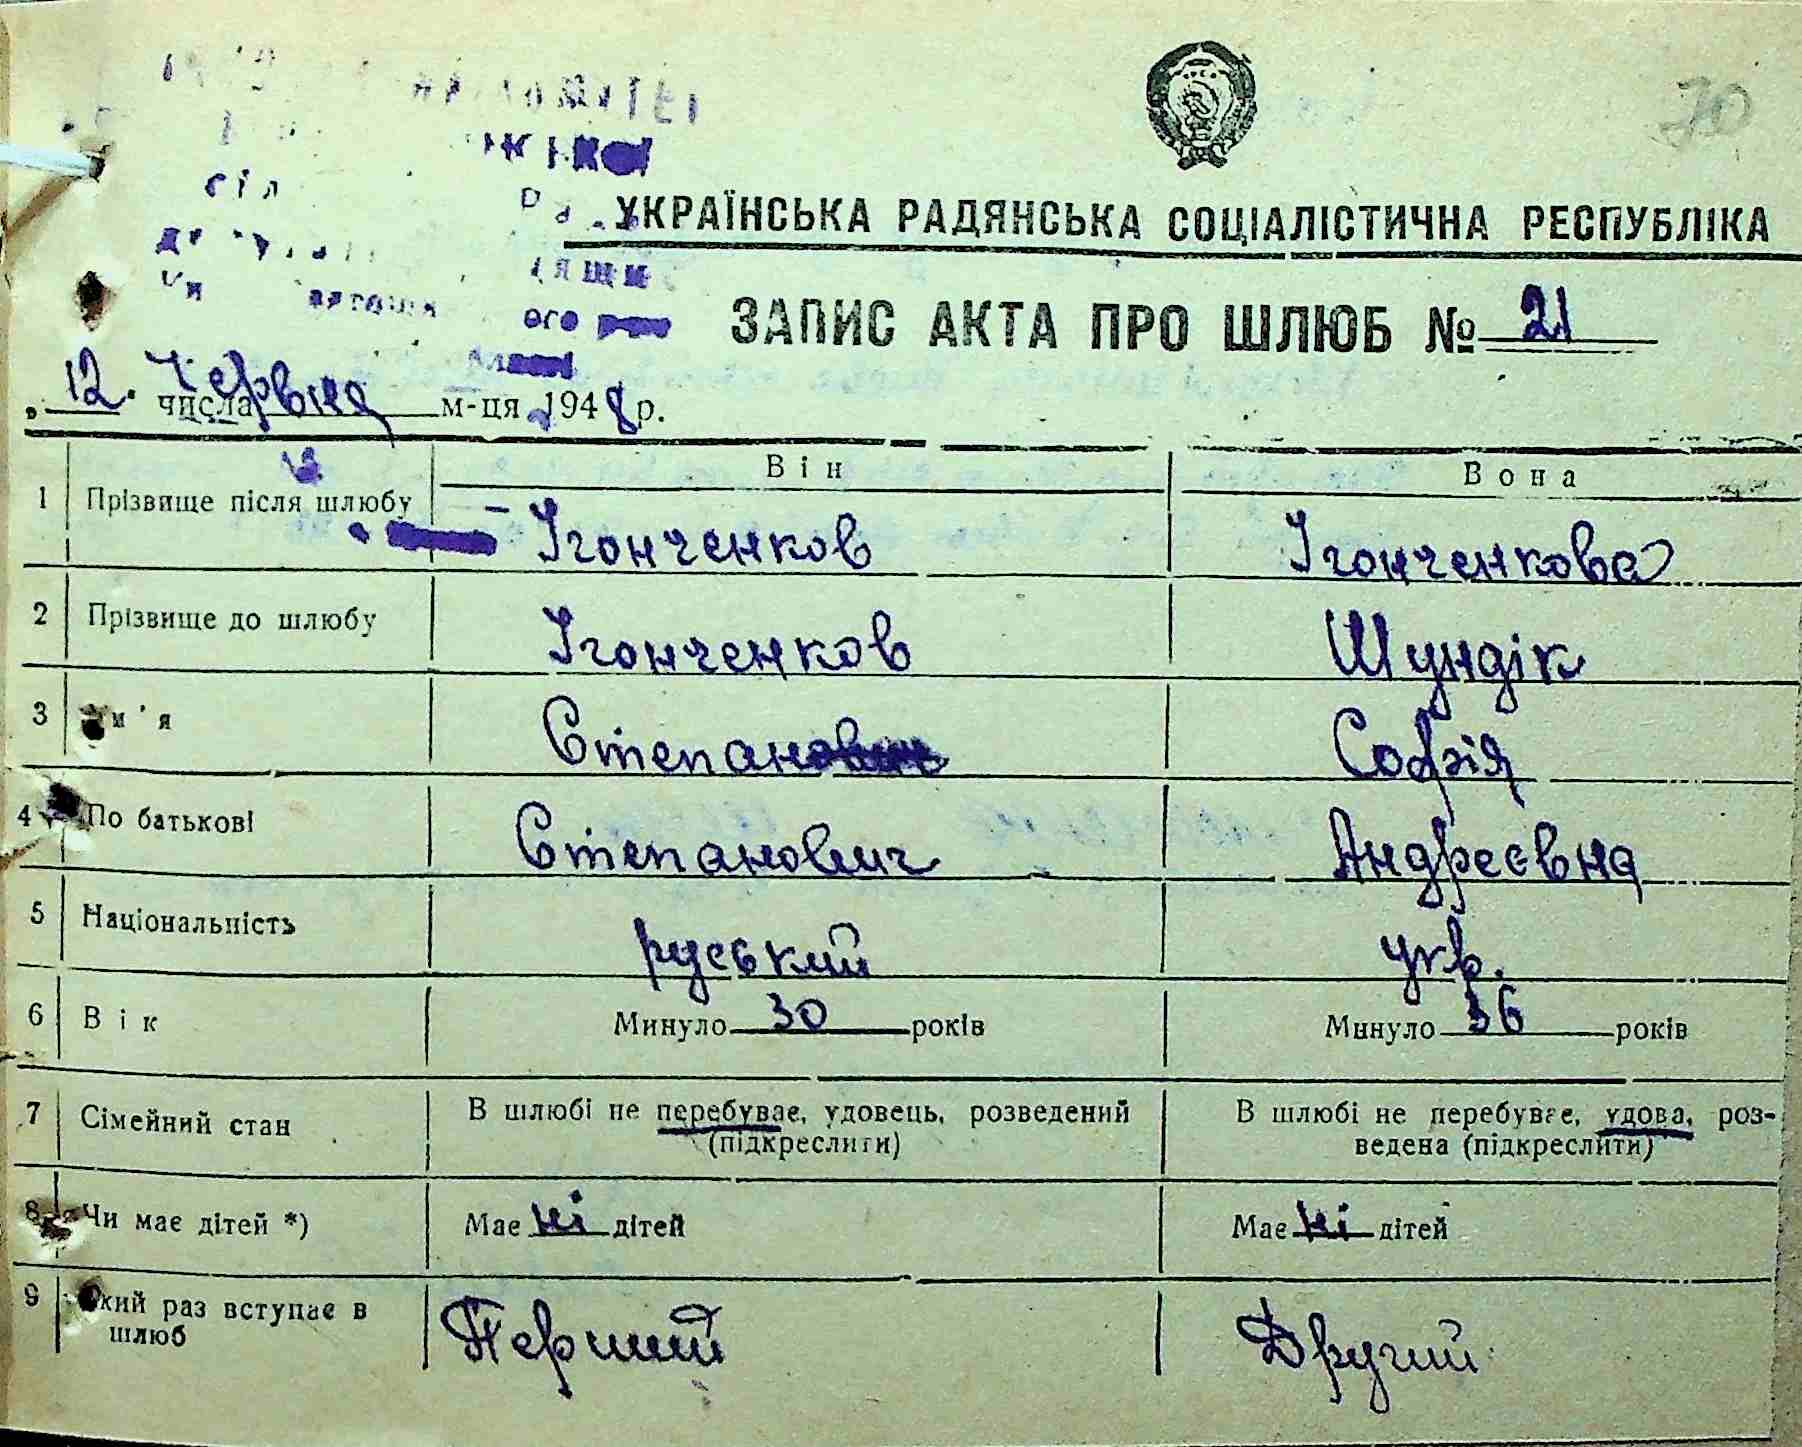 70
УКРАЇНСЬКА РАДЯНСЬКА СОЦІАЛІСТИЧНА РЕСПУБЛІКА
ЗАПИС АКТА ПРО ШЛЮБ № 21
„ 12. числа Червня м-ця 1948 р.
Він Вона
1 Прізвище після шлюбу Ігонченков Ігонченкова
2 Прізвище до шлюбу Ігонченков Шундік
3 м'я Степан Софія
4 По батькові Степанович Андреєвна
5 Національність руський укр.
6 Вік Минуло 30 років Минуло 36 років
7 Сімейний стан В шлюбі не перебуває, удовець, розведений (підкреслити) В шлюбі не перебуває, удова, роз-
ведена (підкреслити)
8 Чи має дітей *) Має ні дітей Має ні дітей
9 кий раз вступає в шлюб Перший Другий